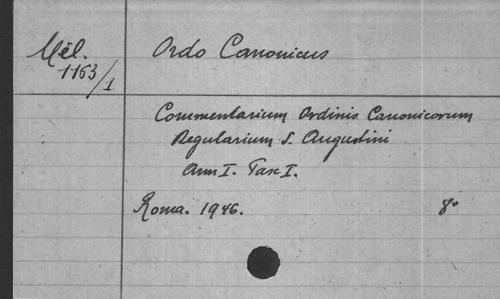 Mél.
1163/1
Ordo Canonicus
Commentarium Ordinis Canonicorum
Regularium S. Augustini
Ann I. Fasc I.
Roma. 1946. 8°